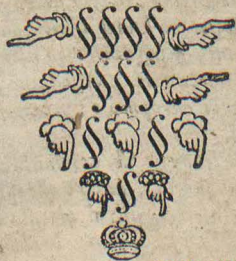 ☞ § § § § ☞
☞ § § § ☞
☟ § ☟ § ☟
☟ § ☟